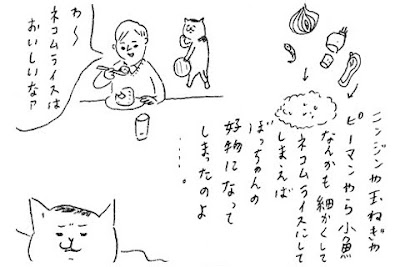 ニンジンや玉ねぎや
ピーマンやら小魚
なんかも細かくして
ネコムライスにして
しまえば
ぼっちゃんの
好物になって
しまったのよ
・・・・。
わ〜
ネコムライスは
おいしいなァ